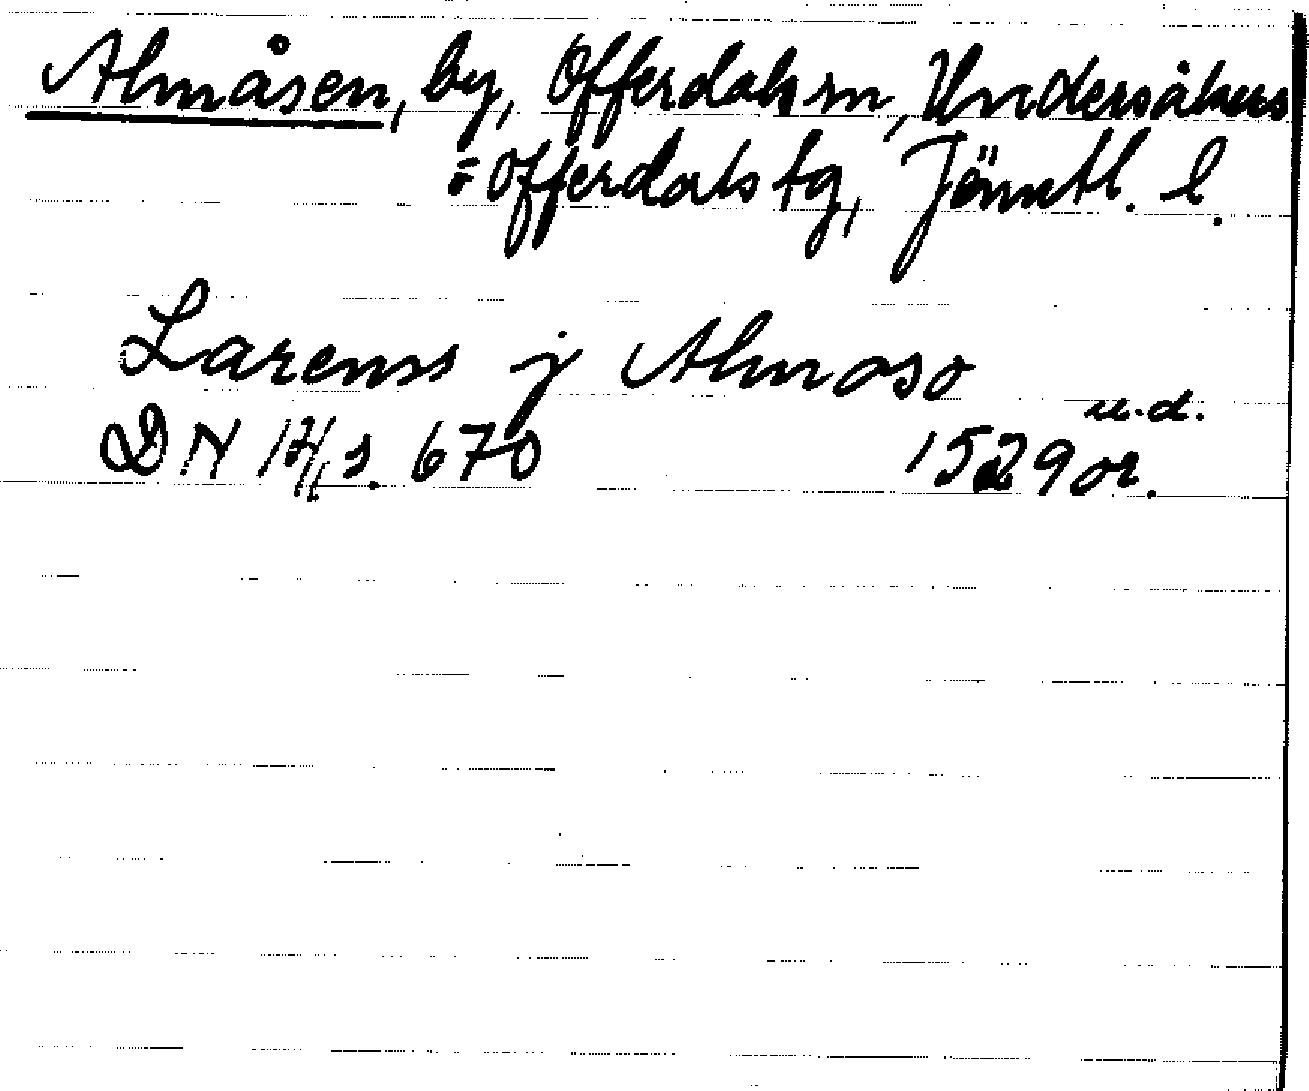 Almåsen, by, Offerdals sn, Undersåkers
= Offerdals tg, Jämtl. l.
Larenss j Almoso
u.d.
DN 14/1 s. 670 1529 or.